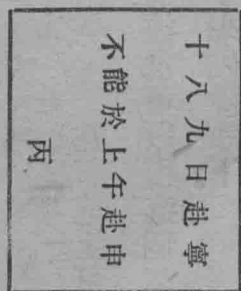 十八九日赴寧
不能於上午赴申
丙